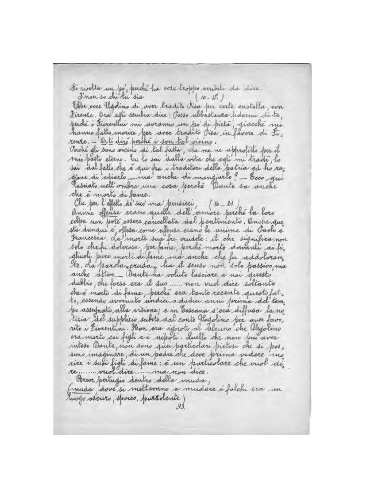 si rivolta un po', perché ha cose troppo orribili da dire.
I' non so chi tu sia (10-12)
Ebbe voce Ugolino di aver tradito Pisa per certe castella, con
Firenze. Ora egli sembra dire: Posso abbastanza fidarmi di te,
perché i Fiorentini mi avranno un po' di pietà, giacché mi
hanno fatto morire per aver tradito Pisa in favore di Fi-
renze. - Or ti dirò perché i son tal vicino.
Perché gli sono vicino di tal fatta, che me ne approfitto per il
mio pasto eterno. Tu lo sai dalla vita che egli mi tradì, lo
sai dal fatto che è qui fra i traditori della patria ed ho ra-
gione di odiarlo ma anche di mangiarlo? - Ecco qui
lasciato nell'ombra una cosa perché Dante sa anche
che è morto di fame.
Che per l'effetto de' suoi ma' pensieri (16-21)
Anime offense erano quelle dell'amore perché la loro
colpa non poté essere cancellata dal pentimento. Anche que-
sto dunque è offesa come offense erano le anime di Paolo e
Francesca. La morte sua fu cruda: il che significa non
solo che fu dolorosa per fame, perché morto davanti ai fi-
glioli pure morti di fame, ma anche che fu addoloran-
te. La parola cruda ha il senso non solo passivo, ma
anche attivo. - Dante ha voluto lasciare a noi questo
dubbio, che forse era il suo non vuol dire soltanto
che è morto di fame, perché era tanto recente questo fat-
to, essendo avvenuto undici o dodici anni prima del tem-
po assegnato alla visione, e in Toscana s'era diffusa la no-
tizia del supplizio subito dal conte Ugolino per aver favo-
rito i Fiorentini. Non era ignoto ad alcuno che Ugolino
era morto coi figli e i nipoti. Quello che non può aver
inteso Dante, non sono quei particolari pietosi che si pos-
sono immaginare di un padre che deve prima vedere mo-
rire i suoi figli di fame: è un particolare che vuol di-
re vuol dire ma non dice.
Breve pertugio dentro dalla muda,
(muda dove si mettevano a mudare i falchi era un
luogo oscuro, sporco, puzzolente)
93.